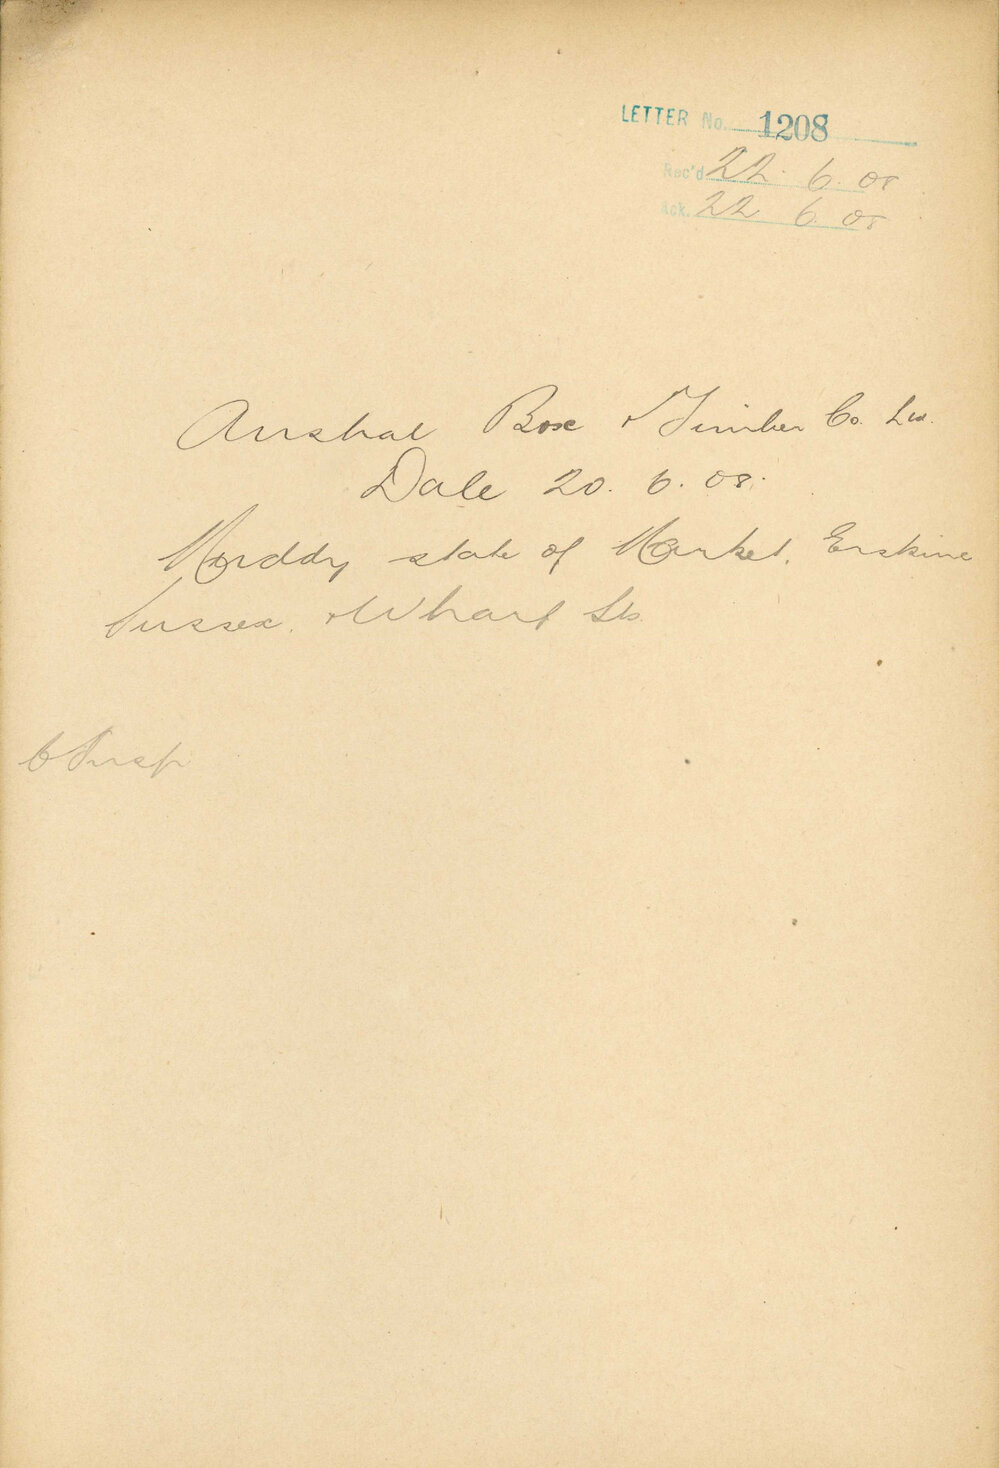 LETTER No. 1208
Rec'd 22. 6. 08
Ack. 22 6. 08
Austral Box & Timber Co. Ltd.
Date 20. 6. 08.
Muddy state of Market, Erskine
Sussex, & Wharf Sts.
C Insp